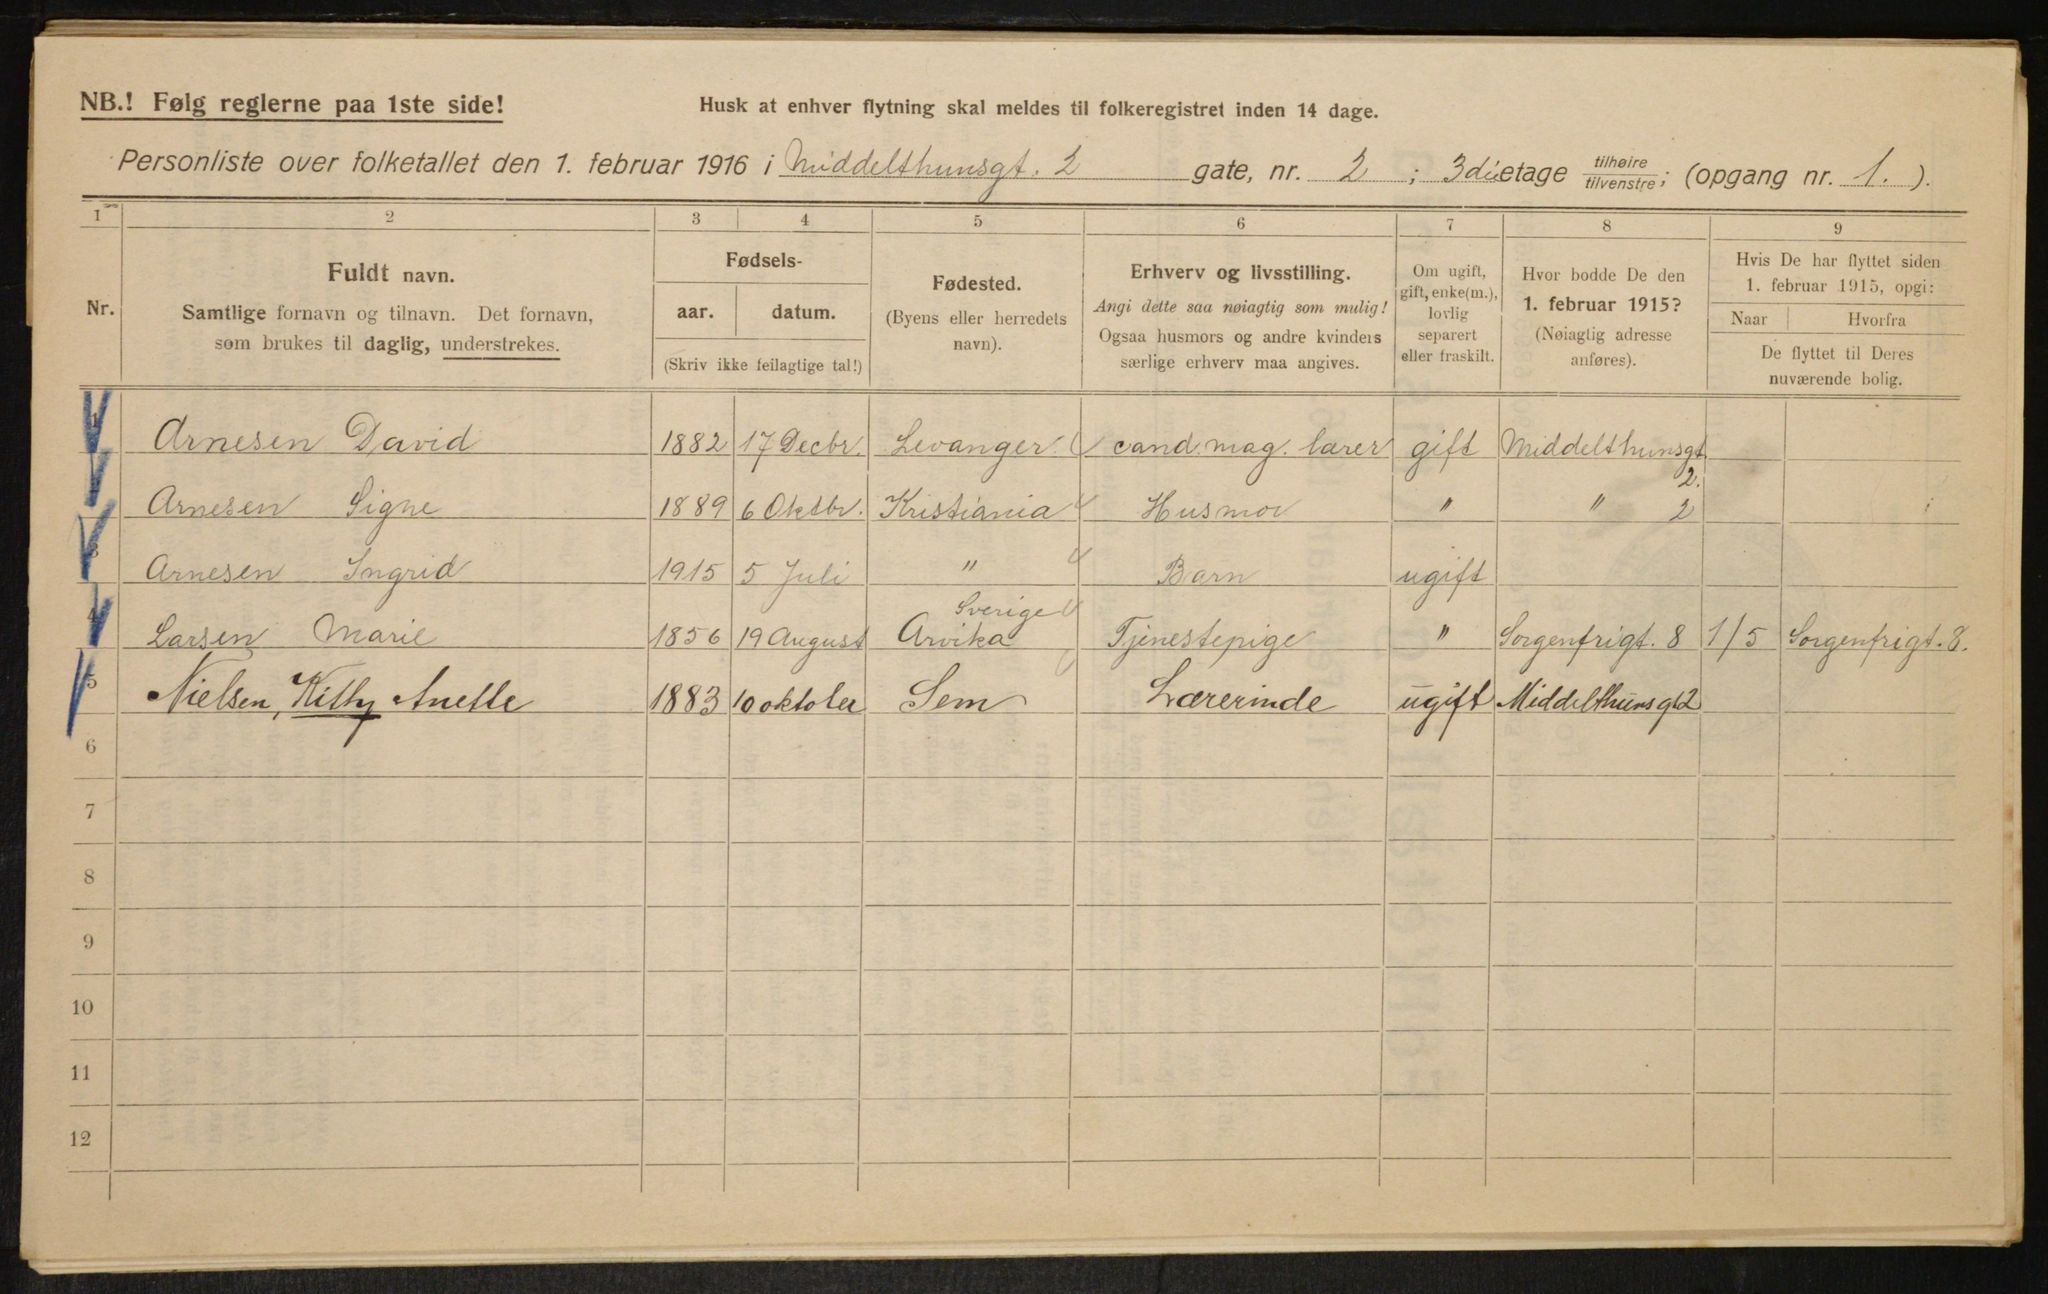 NB.! Følg reglerne paa 1ste side!
Husk at enhver flytning skal meldes til folkeregistret inden 14 dage.
Personliste over folketallet den 1. februar 1916 i Middelthunsgt. 2 gate, nr. 2 ; 3die etage tilhøire/tilvenstre; (opgang nr. 1. ).
1 2 3 4 5 6 7 8 9
Nr.
Fuldt navn.
Samtlige fornavn og tilnavn. Det fornavn,
som brukes til daglig, understrekes.
Fødsels-
aar. datum.
(Skriv ikke feilagtige tal!)
Fødested.
(Byens eller herredets
navn).
Erhverv og livsstilling.
Angi dette saa nøiagtig som mulig!
Ogsaa husmors og andre kvinders
særlige erhverv maa angives.
Om ugift,
gift, enke(m.),
lovlig
separert
eller fraskilt.
Hvor bodde De den
1. februar 1915?
(Nøiagtig adresse
anføres).
Hvis De har flyttet siden
1. februar 1915, opgi:
Naar Hvorfra
De flyttet til Deres
nuværende bolig.
1 Arnesen David 1882 17 Decbr. Levanger cand. mag. lærer gift Middelthunsgt. 2.
Arnesen Signe 1889 6 Oktbr. Kristiania Husmor " " 2
3 Arnesen Ingrid 1915 5 Juli " Barn ugift
4 Larsen Marie 1856 19 August Arvika Sverige Tjenestepige " Sorgenfrigt. 8 1/5 Sorgenfrigt. 8.
5 Nielsen, Kitty Anette 1883 10 oktober Sem Lærerinde ugift Middelthunsgt 2
6
7
8
9
10
11
12